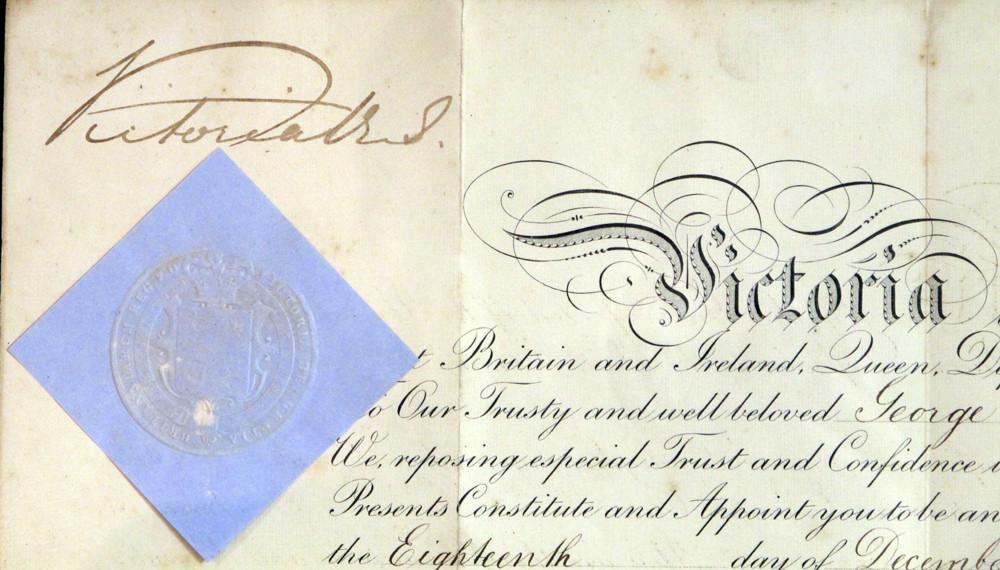 Victoria R I.
Victoria
Britain and Ireland, Queen, D
o Our Trusty and well beloved George
We, reposing especial Trust and Confidence
Presents Constitute and Appoint you to be an
the Eighteenth day of Decemb